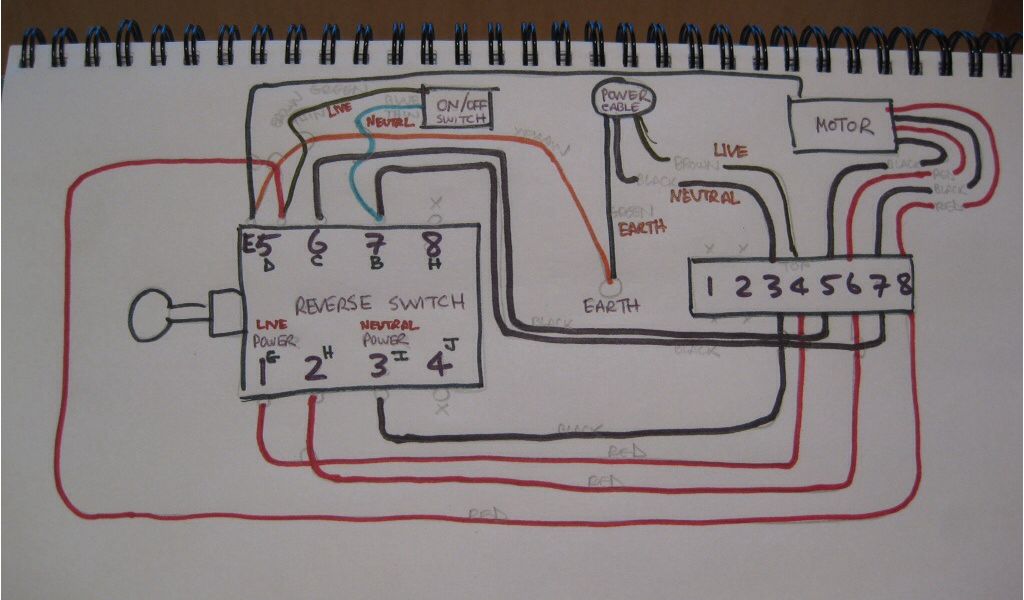 BROWN GREEN
BLUE
THIN
LIVE
NEUTRAL
ON/OFF
SWITCH
POWER
CABLE
MOTOR
BROWN
LIVE
BLACK
NEUTRAL
GREEN
EARTH
EARTH
BLACK
RED
BLACK
RED
X
X
X
TOP
1 2 3 4 5 6 7 8
E5 6 7 8
D C B H
REVERSE SWITCH
LIVE
POWER
NEUTRAL
POWER
1G 2H 3I 4J
X
BLACK
BLACK
BLACK
RED
RED
RED